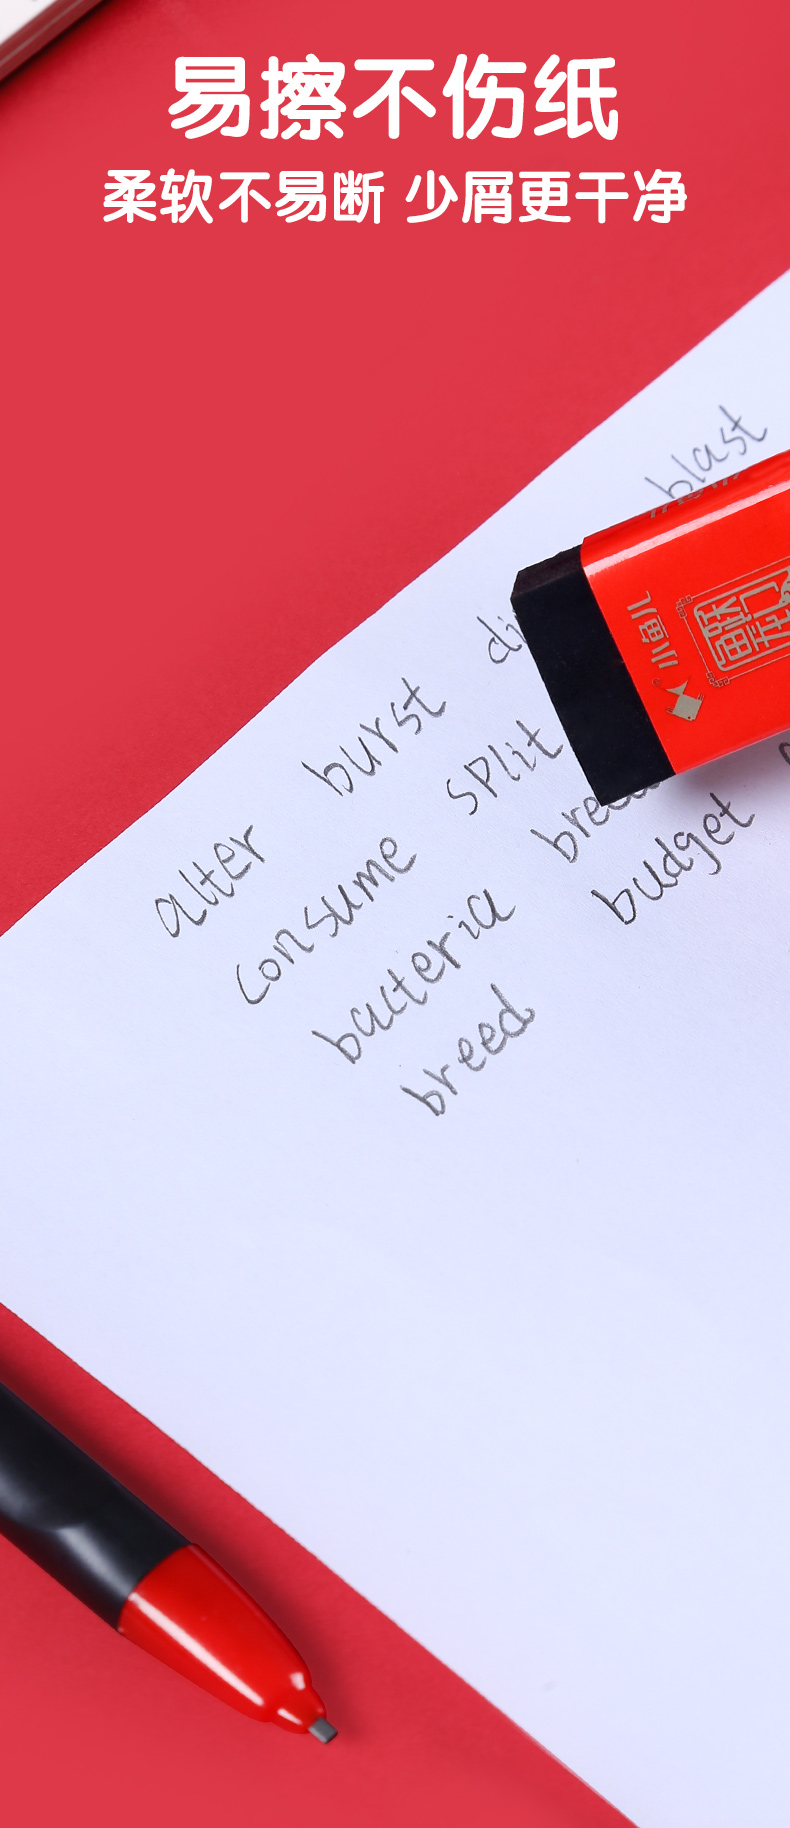 易擦不伤纸
柔软不易断 少屑更干净
blast
alter burst di
consume split
bacteria bree
breed budget
小鱼儿
鱼跃
龙门